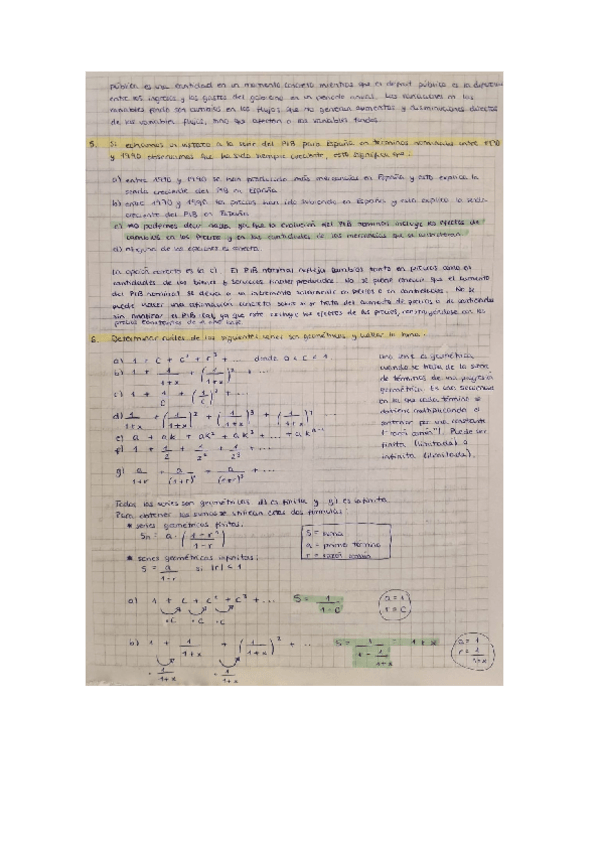 pública es una cantidad en un momento concreto mientras que el déficit público es la diferencia
entre los ingresos y los gastos del gobierno en un periodo anual. Las variaciones en las
variables fondo son cambios en los flujos, que no generan aumentos y disminuciones directos
de las variables flujos, sino que afectan a las variables fondos.
5. Si echamos un vistazo a la serie del PIB para España en términos nominales entre 1970
y 1990 observamos que ha sido siempre creciente, esto significa que:
a) entre 1970 y 1990 se han producido más mercancías en España y esto explica la
senda creciente del PIB en España
b) entre 1970 y 1990 los precios han ido subiendo en España y esto explica la senda
creciente del PIB en España
c) no podemos decir nada ya que la evolución del PIB nominal incluye los efectos de
cambios en los precios y en las cantidades de las mercancías que se intercambian
d) ninguna de las opciones es correcta
La opción correcta es la c). El PIB nominal refleja cambios tanto en precios como en
cantidades de los bienes y servicios finales producidos. No se puede concluir que el aumento
del PIB nominal se deba a un incremento solamente en precios o en cantidades. No se
puede hacer una afirmación concreta sobre si se trata del aumento de precios o de cantidades
sin analizar el PIB real, ya que este excluye los efectos de los precios,
precios constantes de un año base.
6. Determinar cuáles de las siguientes series son geométricas y hallar la suma:
a) 1 + c + c² + c³ + ... donde 0 < c < 1
b) 1 + 1/1+x + (1/1+x)² + ...
c) 1 + 1/c + (1/c)² + ...
d) 1/1+x + (1/1+x)² + (1/1+x)³ + (1/1+x)⁴ ...
e) a + ak + ak² + ak³ + ... + ak
f) 1 + 1/2 + 1/2² + 1/2³ + ...
g) a/1+r + a/(1+r)² + a/(1+r)³ + ...
una serie es geométrica
cuando se trata de la suma
de términos de una progresión
geométrica. Es una secuencia
en la que cada término se
obtiene multiplicando el
anterior por una constante
("razón común"). Puede ser
finita (limitada) o
infinita (ilimitada).
Todas las series son geométricas. es finita y g) es infinita.
Para obtener las sumas se utilizan estas dos fórmulas:
* series geométricas finitas:
Sn = a · (1-rⁿ/1-r)
S = suma
a = primer término
r = razón común
* series geométricas infinitas:
S = a/1-r si |r| < 1
a) 1 + c + c² + c³ + ... S = 1/1-c a=1
·c ·c ·c r=c
b) 1 + 1/1+x + (1/1+x)² + ... S = 1/1-1/1+x = 1+x a=1
· 1/1+x · 1/1+x r = 1/1+x